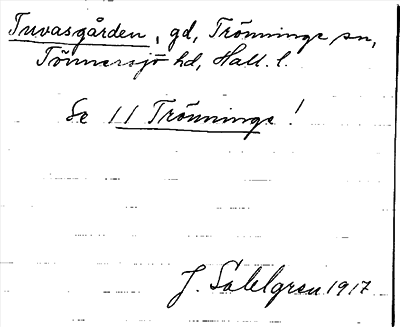 Tuvasgården, gd, Trönninge sn,
Tönnersjö hd, Hall. l.
Se 11 Trönninge!
J. Sahlgren 1917